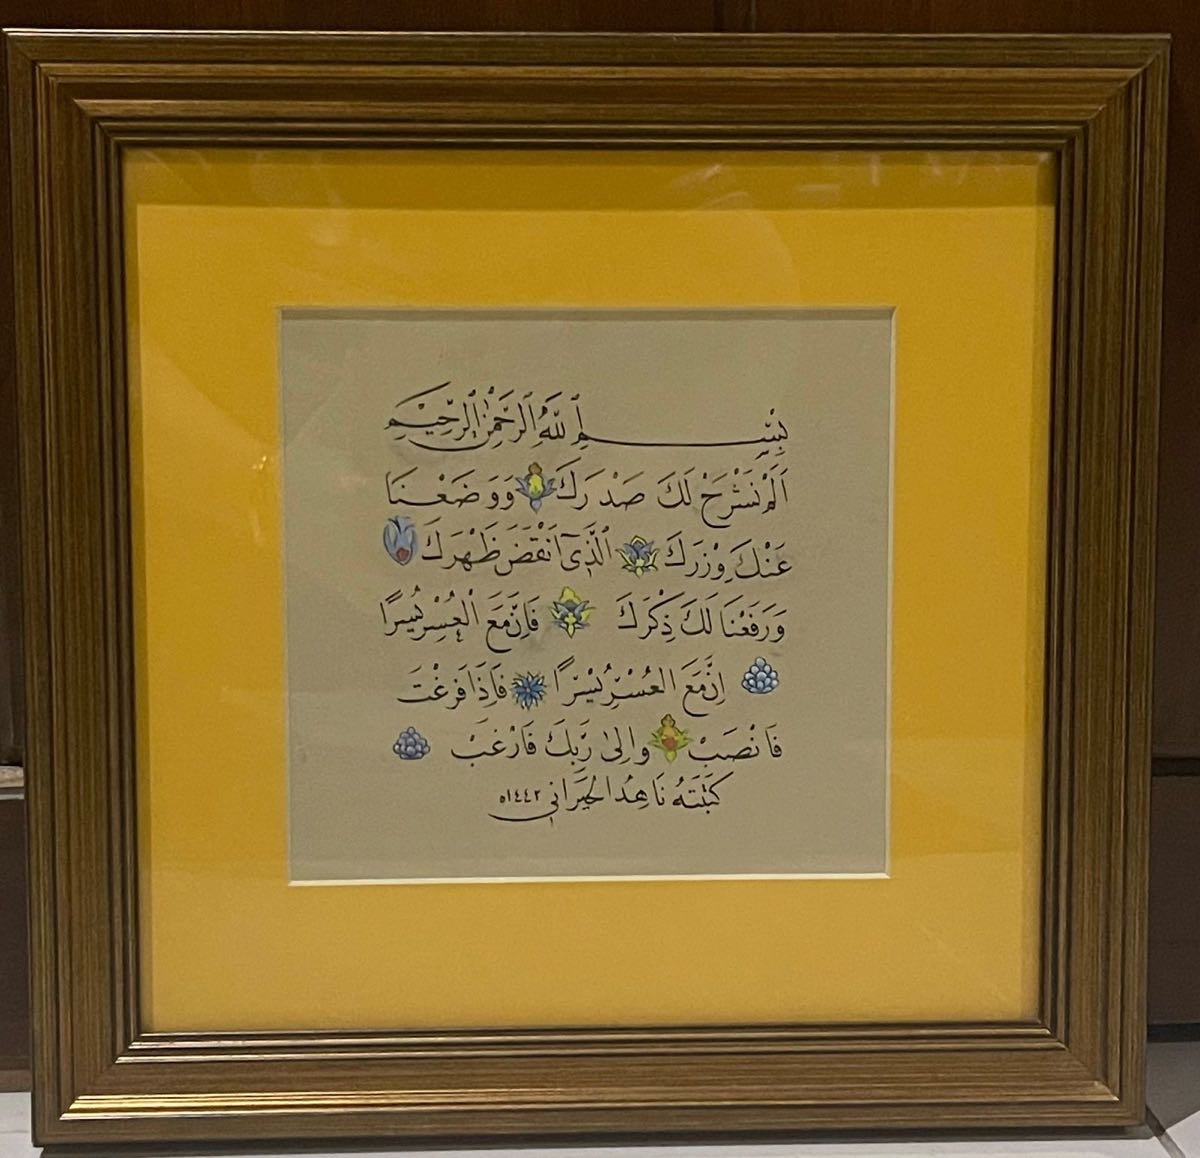 بِسْمِ اللَّهِ الرَّحْمٰنِ الرَّحِيْمِ
اَلَمْ نَشْرَحْ لَكَ صَدْرَكَ وَوَضَعْنَا
عَنْكَ وِزْرَكَ الَّذِىٓ اَنْقَضَ ظَهْرَكَ
وَرَفَعْنَا لَكَ ذِكْرَكَ فَاِنَّ مَعَ الْعُسْرِ يُسْرًا
اِنَّ مَعَ الْعُسْرِ يُسْرًا فَاِذَا فَرَغْتَ
فَانْصَبْ وَاِلىٰ رَبِّكَ فَارْغَبْ
كَتَبَتْهُ نَاهِدُ الحَيْرَانِي ١٤٤٢ه